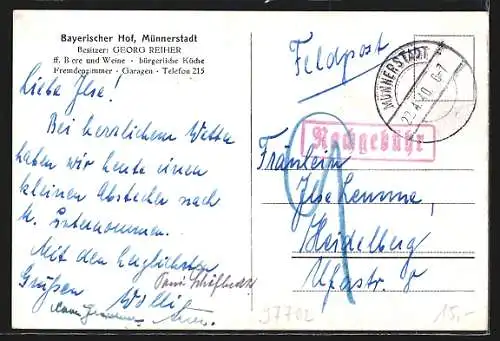 Bayerischer Hof, Münnerstadt
Besitzer: GEORG REIHER
ff. Biere und Weine - bürgerliche Küche
Fremdenzimmer - Garagen - Telefon 215
Liebe Ilse!
Bei herrlichem Wetter
haben wir heute einen
kleinen Abstecher nach
M. unternommen.
Mit den herzlichsten
Grüßen Willi
Feldpost
MÜNNERSTADT
22.4.40. 6-7
Nachgebühr
9
Fräulein
Ilse Lemme,
Heidelberg
Ufastr. 8
97702
15,-